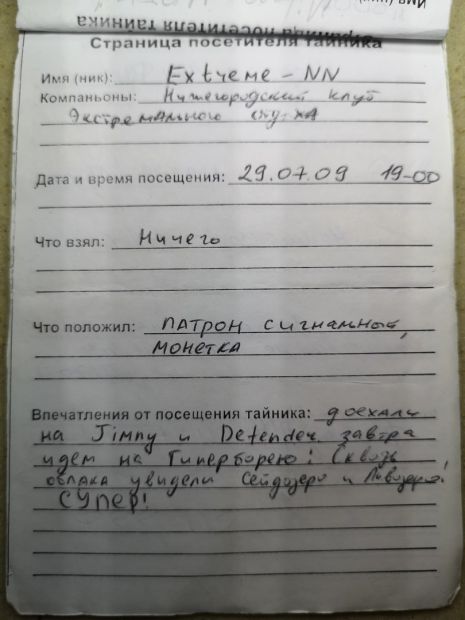 Страница посетителя тайника
Страница посетителя тайника
Имя (ник): Extreme-NN
Компаньоны: Нижегородский клуб
Экстремального отдыха
Дата и время посещения: 29.07.09 19-00
Что взял: Ничего
Что положил: ПАТРОН сигнальный,
монетка
Впечатления от посещения тайника: доехали
на Jimny и Defender, завтра
идем на Гиперборею! Сквозь
облака увидели Сейдозеро и Ловозеро!
СУПер!